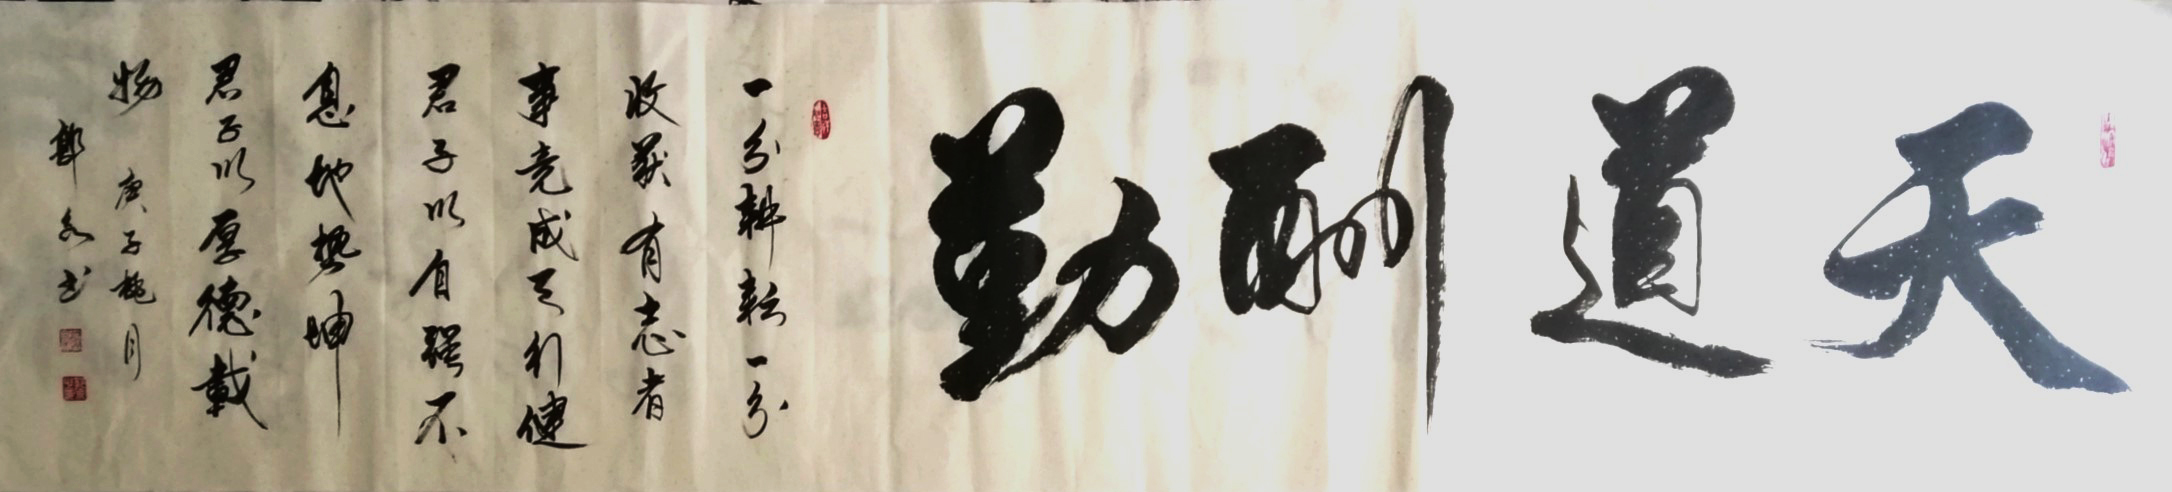 天道酬勤
一分耕耘一分
收获有志者
事竟成天行健
君子以自强不
息地势坤
君子以厚德载
物
庚子桃月
书